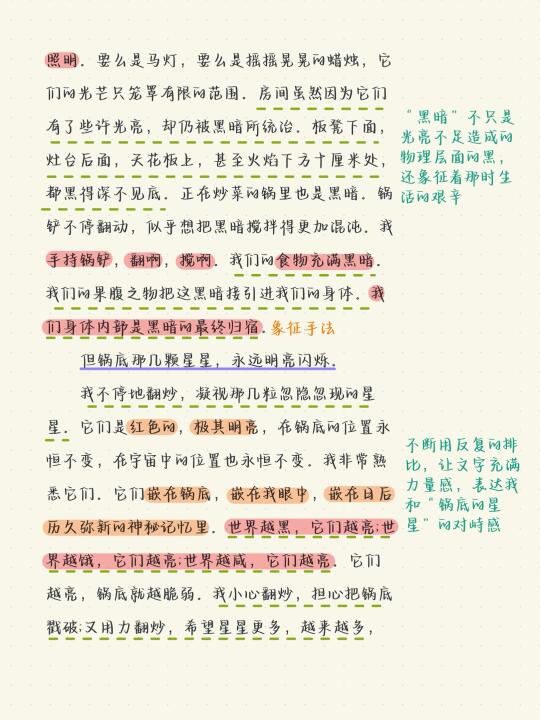 照明．要么是马灯，要么是摇摇晃晃的蜡烛，它
们的光芒只笼罩有限的范围．房间虽然因为它们
有了些许光亮，却仍被黑暗所统治．板凳下面，
灶台后面，天花板上，甚至火焰下方十厘米处，
都黑得深不见底．正在炒菜的锅里也是黑暗．锅
铲不停翻动，似乎想把黑暗搅拌得更加混沌．我
手持锅铲，翻啊，搅啊．我们的食物充满黑暗．
我们的果腹之物把这黑暗接引进我们的身体．我
们身体内部是黑暗的最终归宿．象征手法
但锅底那几颗星星，永远明亮闪烁．
我不停地翻炒，凝视那几粒忽隐忽现的星
星．它们是红色的，极其明亮，在锅底的位置永
恒不变，在宇宙中的位置也永恒不变．我非常熟
悉它们．它们嵌在锅底，嵌在我眼中，嵌在日后
历久弥新的神秘记忆里．世界越黑，它们越亮;世
界越饿，它们越亮;世界越咸，它们越亮．它们
越亮，锅底就越脆弱．我小心翻炒，担心把锅底
戳破;又用力翻炒，希望星星更多，越来越多，
“黑暗”不只是
光亮不足造成的
物理层面的黑，
还象征着那时生
活的艰辛
不断用反复的排
比，让文字充满
力量感，表达我
和“锅底的星
星”的对峙感